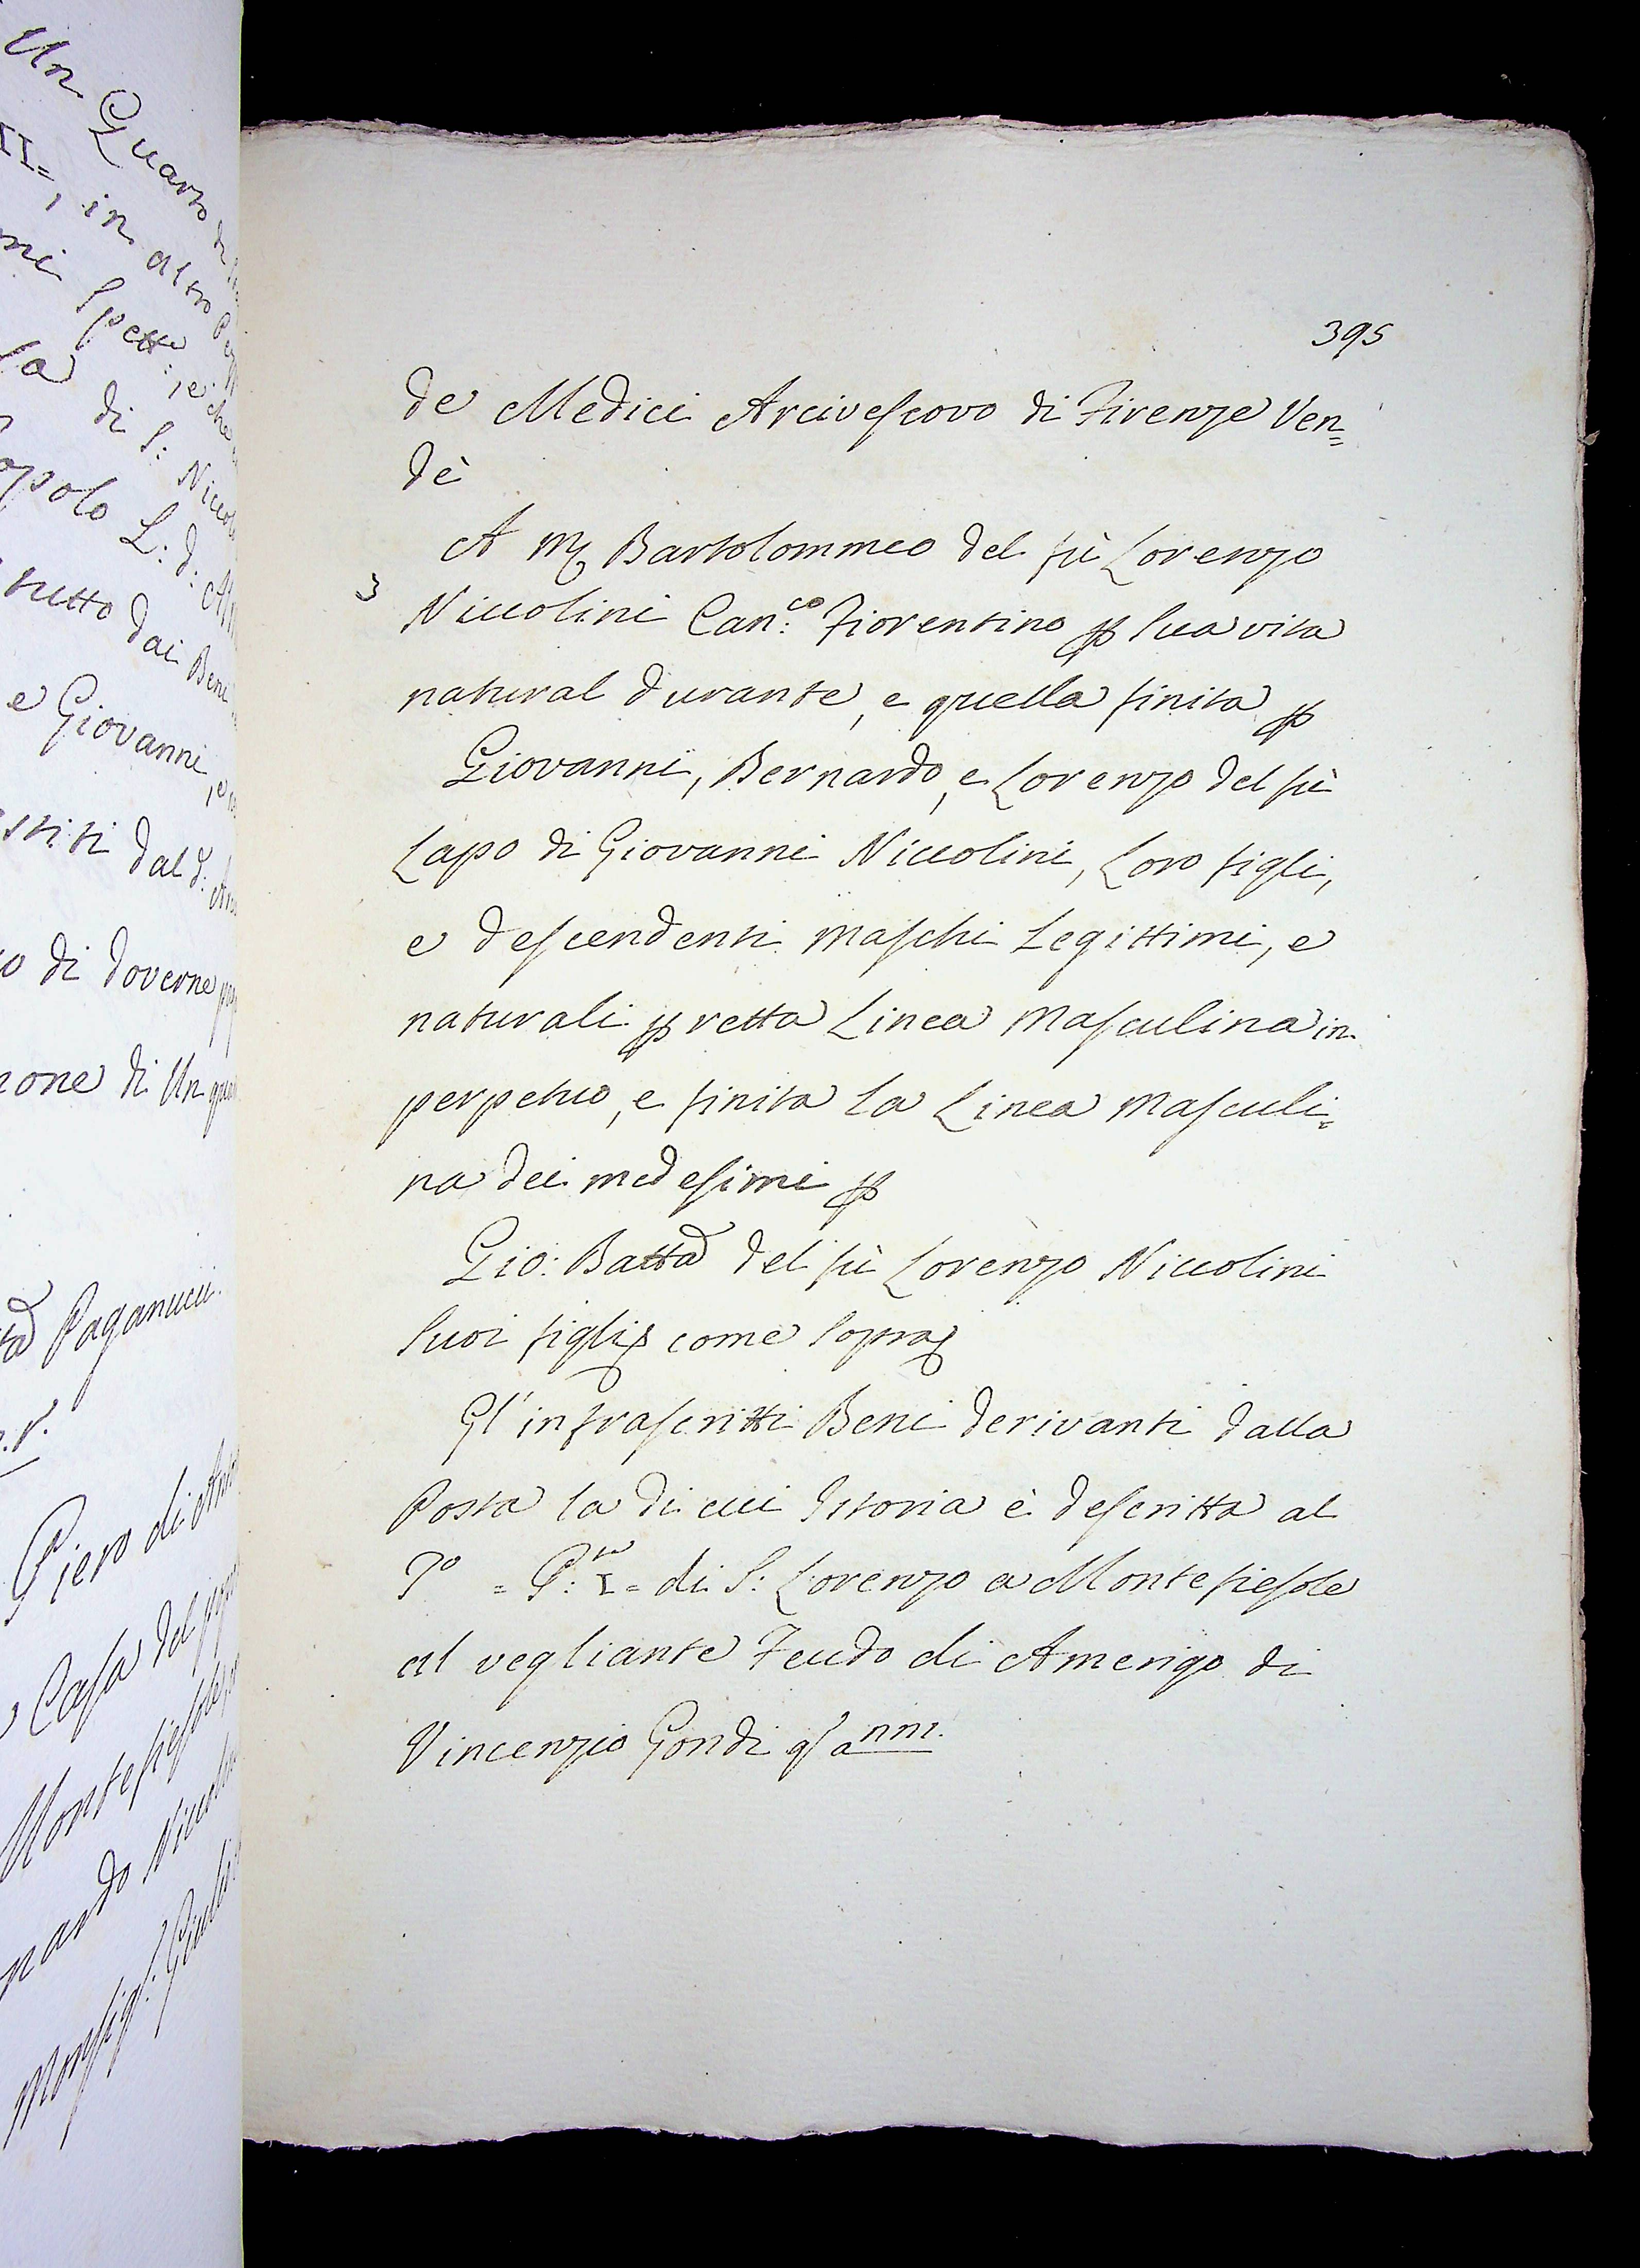 Un Quarto di
II=, in altro
mi Spett:
la di S: Niccol
opolo L: d:
tutto dai Beni
e Giovanni, e
stiti dal d:
o di doverne
none di Un
tta Paganucci.
Piero di
Casa del
Montefiesole,
nardo Niccol
Monsig: Giul
395
de Medici Arcivescovo di Firenze Ven=
dè
A M Bartolommeo del fù Lorenzo
3
Niccolini Can:co Fiorentino p Sua vita
natural durante, e quella finita p
Giovanni, Bernardo, e Lorenzo del fù
Lapo di Giovanni Niccolini, Loro figli,
e descendenti Maschi Legittimi, e
naturali p retta Linea Masculina in
perpetuo, e finita La Linea Masculi=
na dei medesimi p
Gio: Batta del fù Lorenzo Niccolini
Suoi figli come Sopra
Gl'infrascritti Beni derivanti dalla
Posta la di cui Istoria è descritta al
P: I= di S: Lorenzo a Montefiesole
al vegliante Feudo di Amerigo di
Vincenzio Gondi